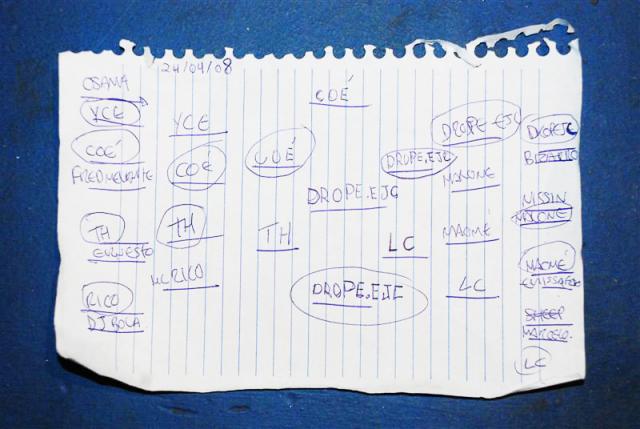 24/04/08
OSAMA
YCE
COÉ
FREDMELEANTE
TH
RICO
DJ BOLA
YCE
COÉ
TH
MC RICO
COÉ
TH
COÉ
DROPE.EJC
DROPE.EJC
DROPE.EJC
LC
DROPE EJC
MALONE
MAOMÉ
LC
DROPEJC
BIZARRO
NISSIN
MALONE
MAOMÉ
SHEEP
MARCELO.
LC